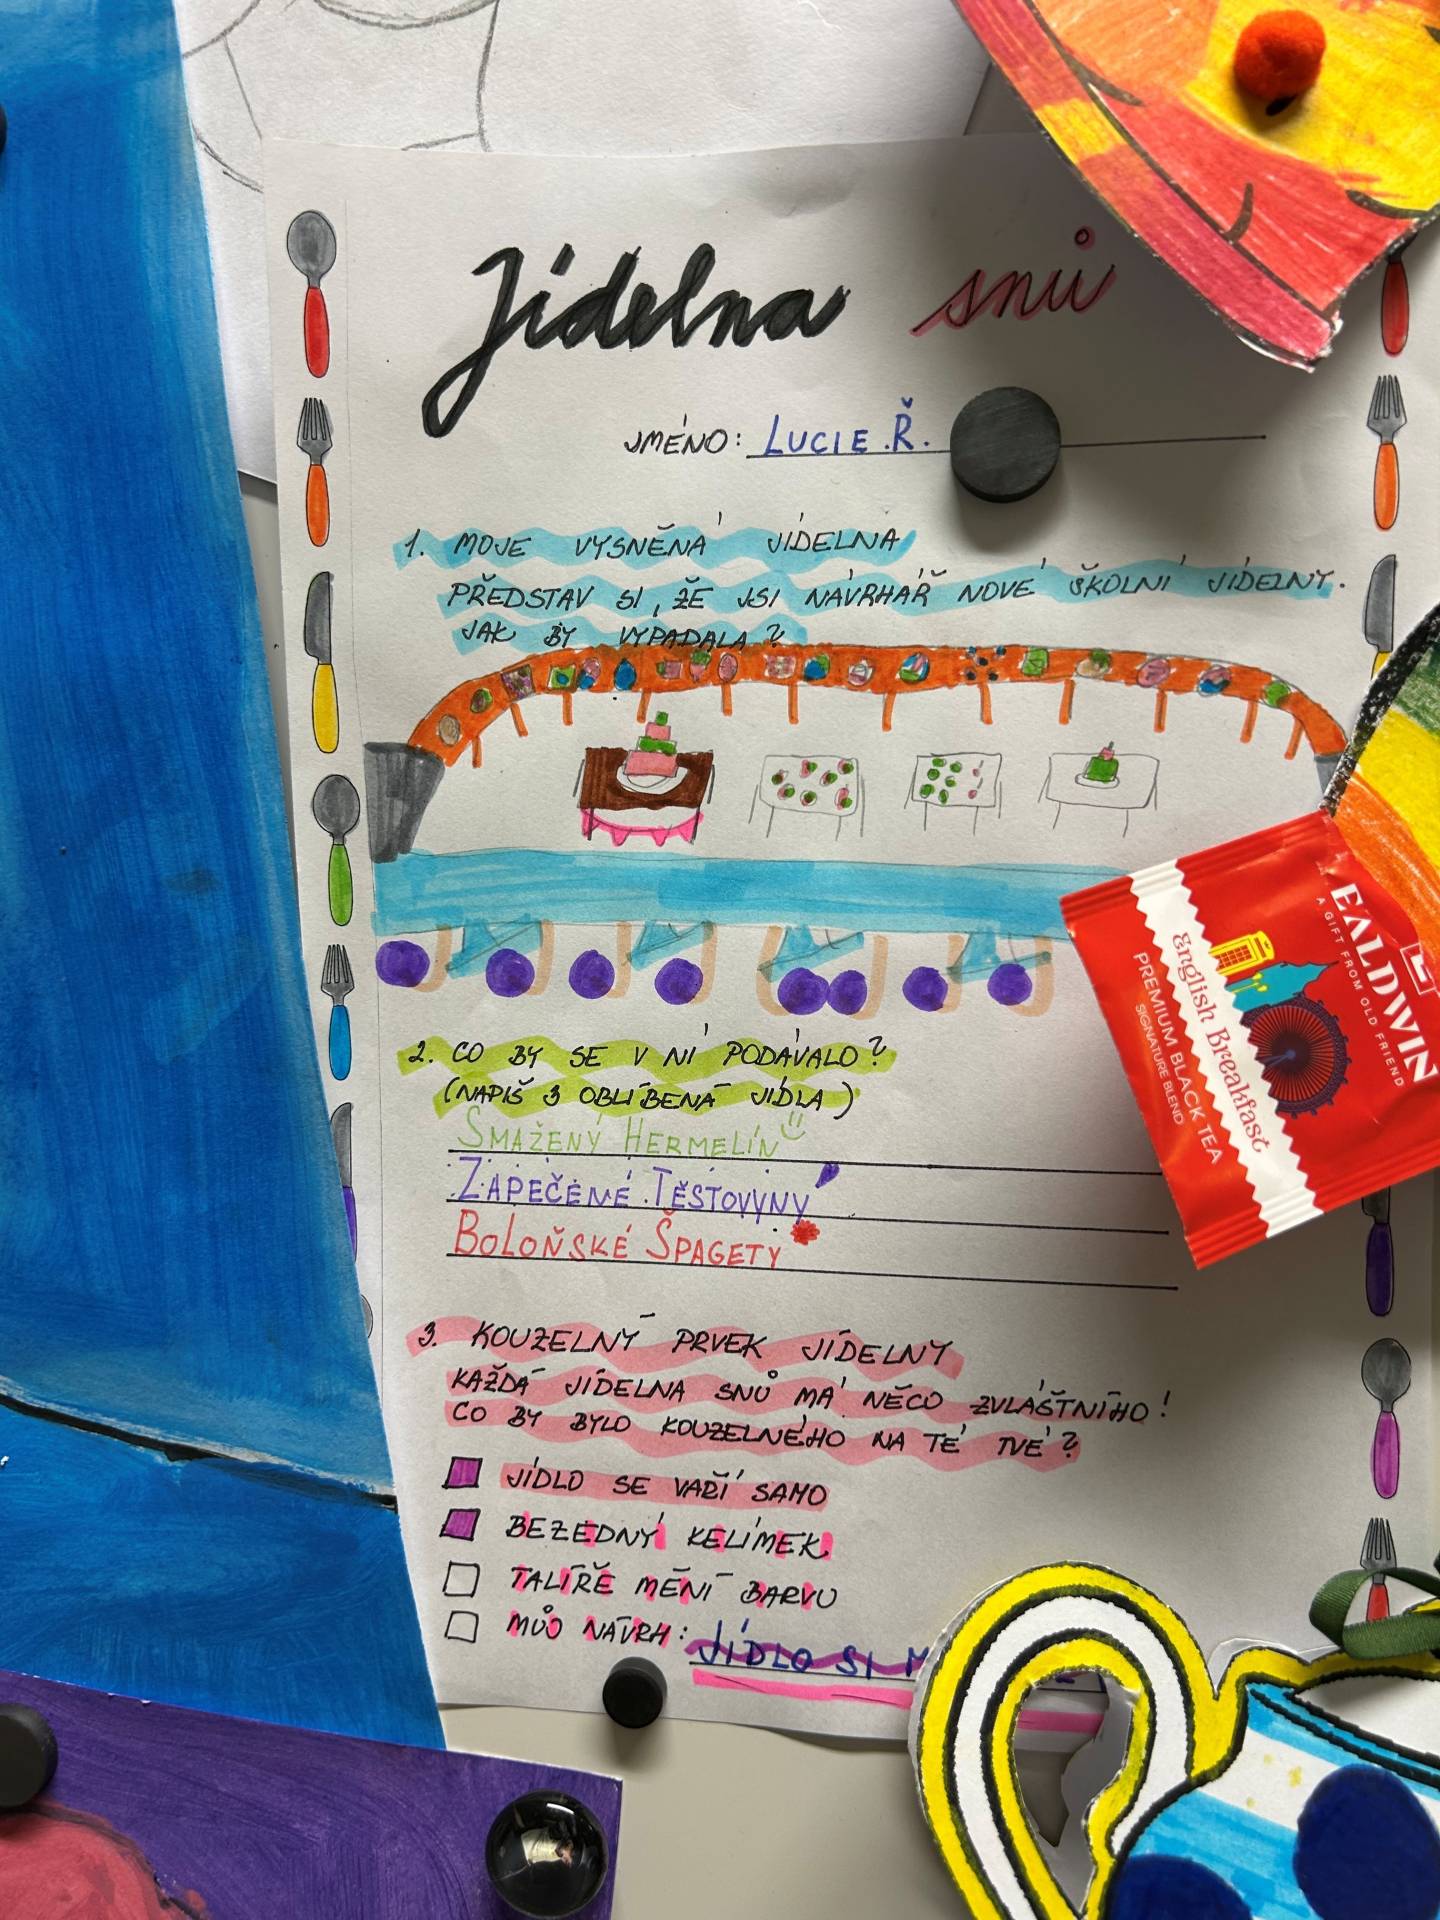 Jídelna snů
JMÉNO: LUCIE Ř.
1. MOJE VYSNĚNÁ JÍDELNA
PŘEDSTAV SI, ŽE JSI NÁVRHÁŘ NOVÉ ŠKOLNÍ JÍDELNY.
JAK BY VYPADALA?
2. CO BY SE V NÍ PODÁVALO?
(NAPIŠ 3 OBLÍBENÁ JÍDLA)
SMAŽENÝ HERMELÍN
ZAPEČENÉ TĚSTOVYNY
BOLOŇSKÉ ŠPAGETY
3. KOUZELNÝ PRVEK JÍDELNY
KAŽDÁ JÍDELNA SNŮ MÁ NĚCO ZVLÁŠTNÍHO!
CO BY BYLO KOUZELNÉHO NA TÉ TVÉ?
JÍDLO SE VAŘÍ SAMO
BEZEDNÝ KELÍMEK
TALÍŘE MĚNÍ BARVU
MŮJ NÁVRH: JÍDLO SI
EALDWIN
A GIFT FROM OLD FRIEND
English Breakfast
PREMIUM BLACK TEA
SIGNATURE BLEND